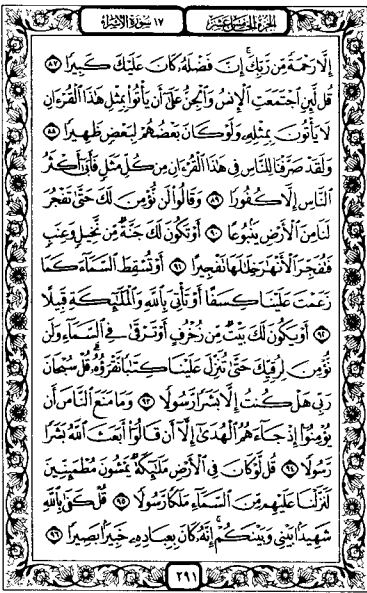 الجزء الخامس عشر
١٧ سورة الإسراء
إِلَّا رَحْمَةً مِّن رَّبِّكَ إِنَّ فَضْلَهُۥ كَانَ عَلَيْكَ كَبِيرًا ٨٧
قُل لَّئِنِ ٱجْتَمَعَتِ ٱلْإِنسُ وَٱلْجِنُّ عَلَىٰٓ أَن يَأْتُوا۟ بِمِثْلِ هَٰذَا ٱلْقُرْءَانِ
لَا يَأْتُونَ بِمِثْلِهِۦ وَلَوْ كَانَ بَعْضُهُمْ لِبَعْضٍ ظَهِيرًا ٨٨
وَلَقَدْ صَرَّفْنَا لِلنَّاسِ فِى هَٰذَا ٱلْقُرْءَانِ مِن كُلِّ مَثَلٍ فَأَبَىٰٓ أَكْثَرُ
ٱلنَّاسِ إِلَّا كُفُورًا ٨٩ وَقَالُوا۟ لَن نُّؤْمِنَ لَكَ حَتَّىٰ تَفْجُرَ
لَنَا مِنَ ٱلْأَرْضِ يَنۢبُوعًا ٩٠ أَوْ تَكُونَ لَكَ جَنَّةٌ مِّن نَّخِيلٍ وَعِنَبٍ
فَتُفَجِّرَ ٱلْأَنْهَٰرَ خِلَٰلَهَا تَفْجِيرًا ٩١ أَوْ تُسْقِطَ ٱلسَّمَآءَ كَمَا
زَعَمْتَ عَلَيْنَا كِسَفًا أَوْ تَأْتِىَ بِٱللَّهِ وَٱلْمَلَٰٓئِكَةِ قَبِيلًا
٩٢ أَوْ يَكُونَ لَكَ بَيْتٌ مِّن زُخْرُفٍ أَوْ تَرْقَىٰ فِى ٱلسَّمَآءِ وَلَن
نُّؤْمِنَ لِرُقِيِّكَ حَتَّىٰ تُنَزِّلَ عَلَيْنَا كِتَٰبًا نَّقْرَؤُهُۥ قُلْ سُبْحَانَ
رَبِّى هَلْ كُنتُ إِلَّا بَشَرًا رَّسُولًا ٩٣ وَمَا مَنَعَ ٱلنَّاسَ أَن
يُؤْمِنُوٓا۟ إِذْ جَآءَهُمُ ٱلْهُدَىٰٓ إِلَّآ أَن قَالُوٓا۟ أَبَعَثَ ٱللَّهُ بَشَرًا
رَّسُولًا ٩٤ قُل لَّوْ كَانَ فِى ٱلْأَرْضِ مَلَٰٓئِكَةٌ يَمْشُونَ مُطْمَئِنِّينَ
لَنَزَّلْنَا عَلَيْهِم مِّنَ ٱلسَّمَآءِ مَلَكًا رَّسُولًا ٩٥ قُلْ كَفَىٰ بِٱللَّهِ
شَهِيدًۢا بَيْنِى وَبَيْنَكُمْ إِنَّهُۥ كَانَ بِعِبَادِهِۦ خَبِيرًۢا بَصِيرًا ٩٦
٢٩١